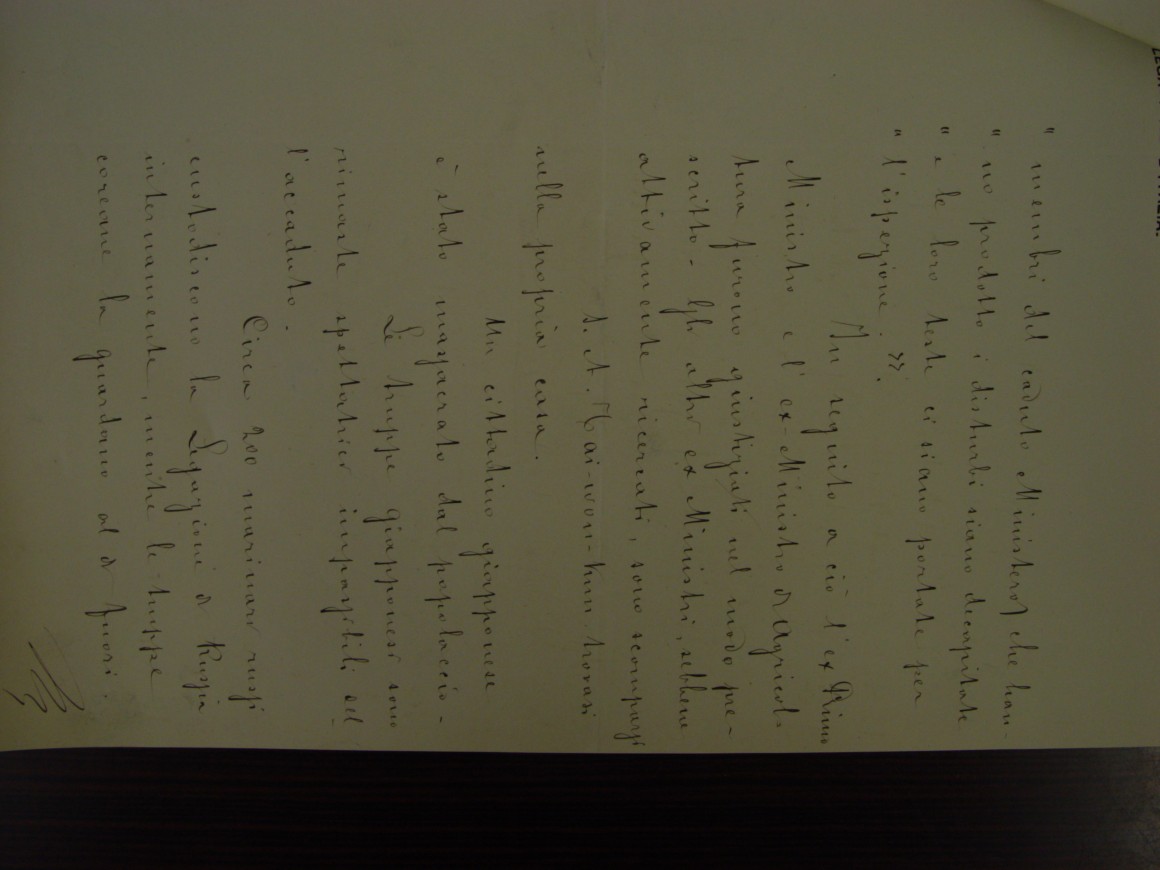 " membri del caduto Ministero che han-
" no prodotto i disturbi siano decapitate
" e le loro teste ci siano portate per
" l'ispezione. »
In seguito a ciò l'ex Primo
Ministro e l'ex-Ministro di Agricol-
tura furono giustiziati nel modo pre-
scritto - Gli altri ex Ministri, sebbene
attivamente ricercati, sono scomparsi
S. A. Tai-won-kun trovasi
nella propria casa.
Un cittadino giapponese
è stato massacrato dal popolaccio -
Le truppe giapponesi sono
rimaste spettatrici impassibili del-
l'accaduto.
Circa 200 marinari russi
custodiscono la Legazione di Russia
internamente, mentre le truppe
coreane la guardano al di fuori.